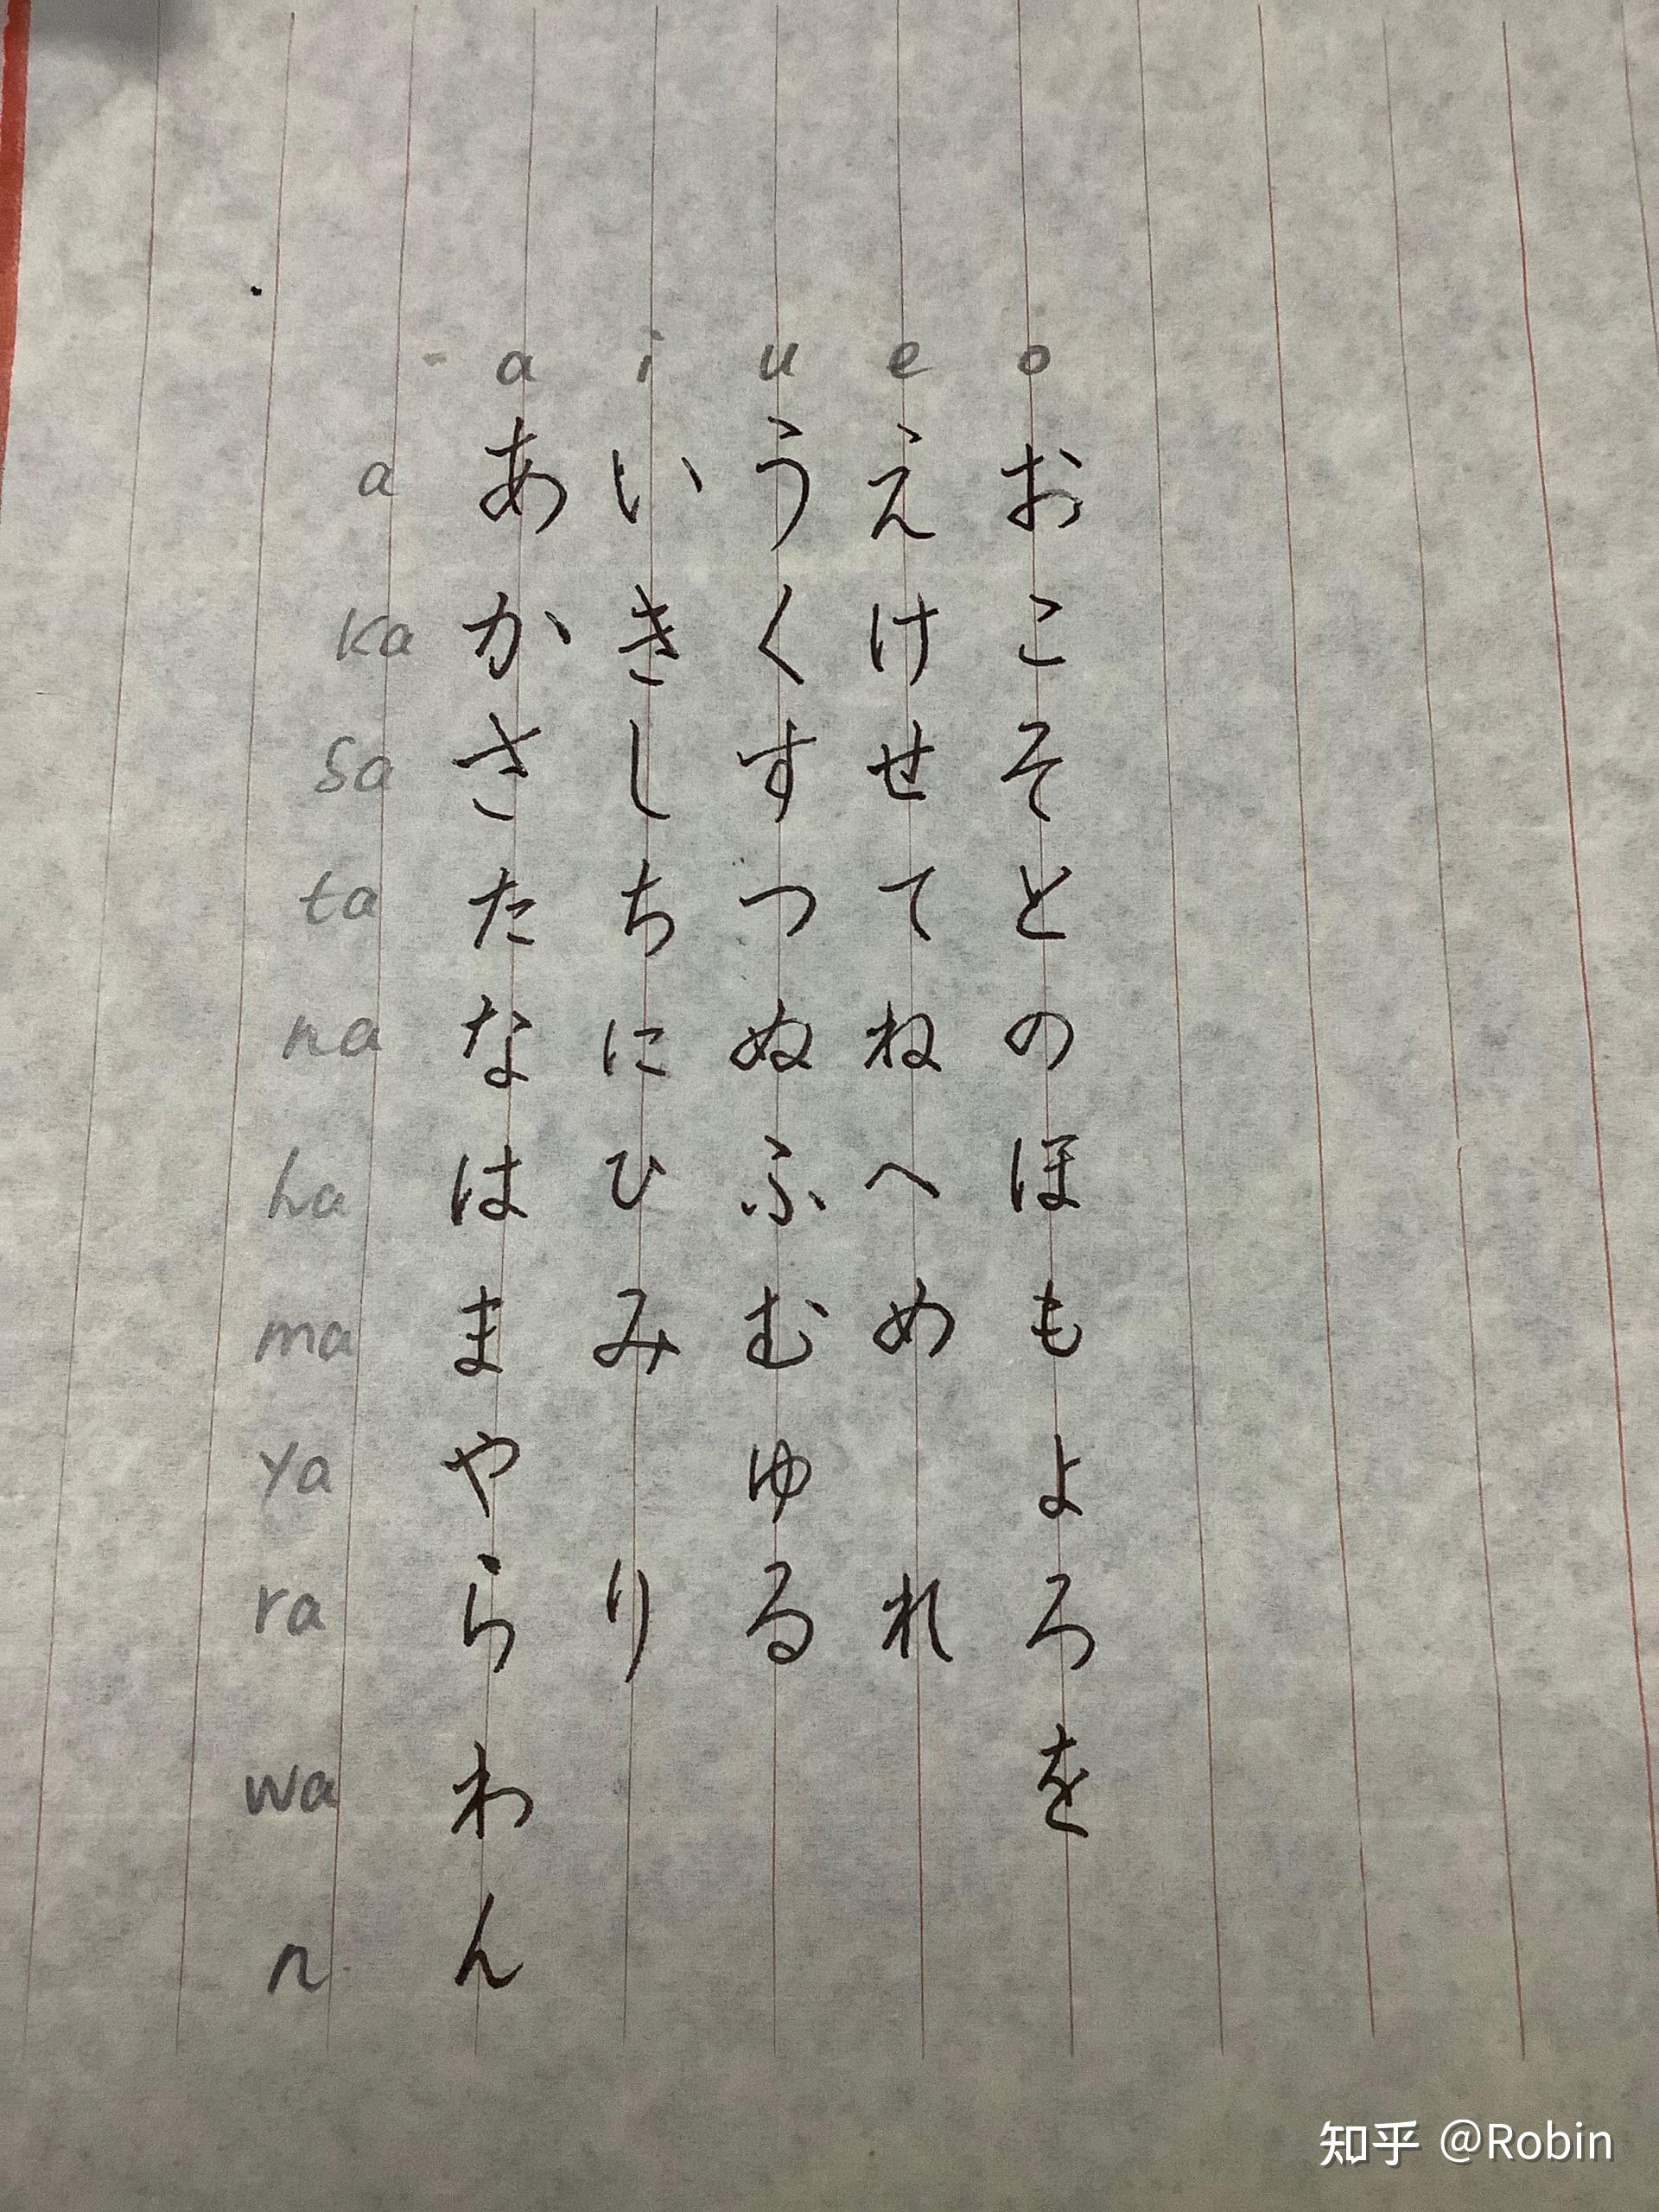 a i u e o
a あ い う え お
ka か き く け こ
sa さ し す せ そ
ta た ち つ て と
na な に ぬ ね の
ha は ひ ふ へ ほ
ma ま み む め も
ya や ゆ よ
ra ら り る れ ろ
wa わ を
n ん
知乎 @Robin